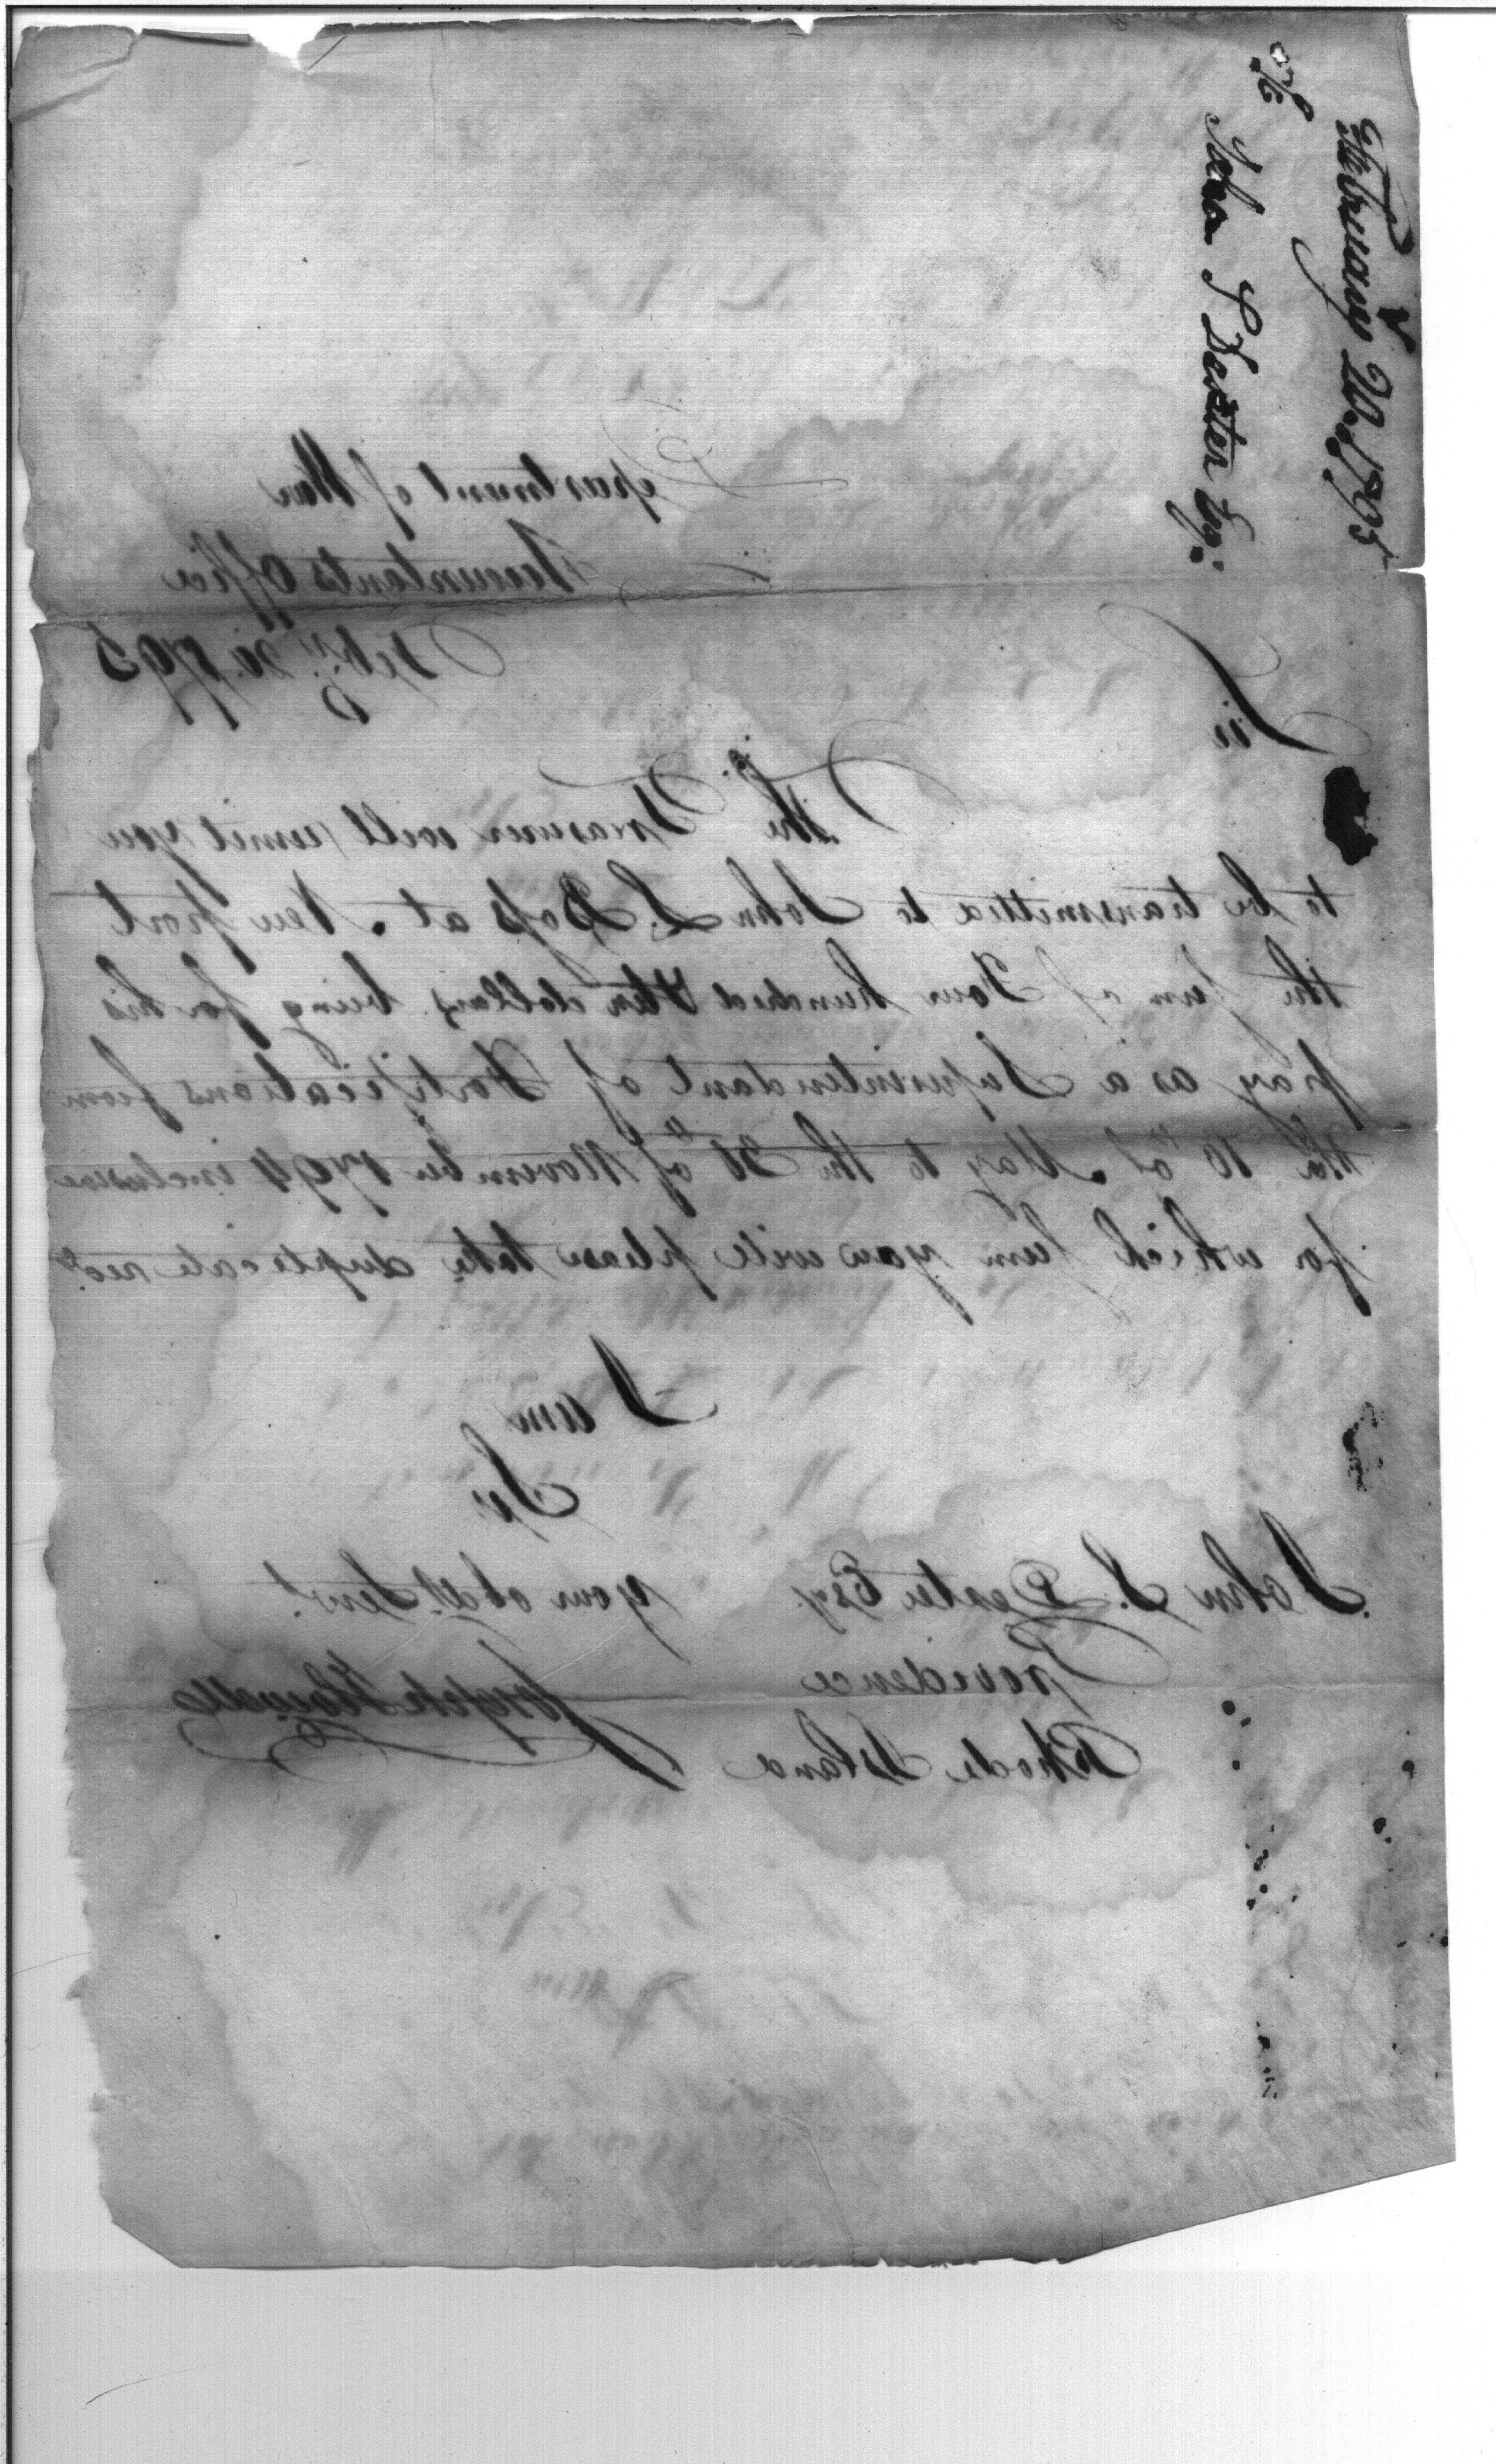 February 20. 1795
To
John S Dexter Esq.
Department of War
Accountants Office
Feby. 20. 1795
Sir
The Treasurer will remit you
to be transmitted to John L. Boss at New port
the sum of Four hundred & ten dollars being for his
pay as a Superintendant of Fortifications from
the 10th of May to the 30th of November 1794 inclusive
for which sum you will please take duplicate rects
I am
Sir
your obdt. Servt.
Joseph Howell
John S. Dexter Esqr.
Providence
Rhode Island